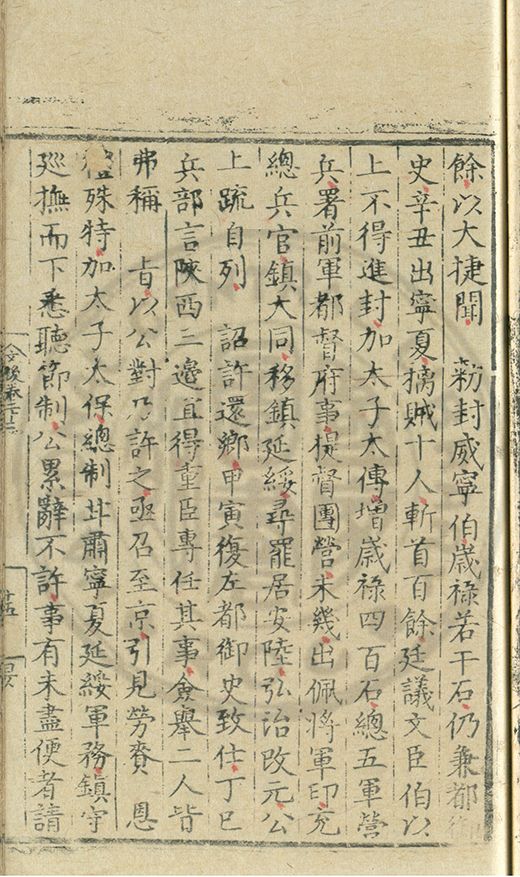 餘以大捷聞 勑封威寧伯歲祿若干石仍兼都御
史辛丑出寧夏擒賊十人斬首百餘廷議文臣伯以
上不得進封加太子太傅增歲祿四百石總五軍營
兵署前軍都督府事提督團營未幾出佩將軍印充
總兵官鎮大同移鎮延綏尋罷居安陸弘治改元公
上疏自列 詔許還鄉甲寅復左都御史致仕丁巳
兵部言陝西三邊宜得重臣專任其事僉舉二人皆
弗稱 旨以公對乃許之亟召至京引見勞賚 恩
禮殊特加太子太保總制甘肅寧夏延綏軍務鎮守
廵撫而下悉聽節制公累辭不許事有未盡便者請